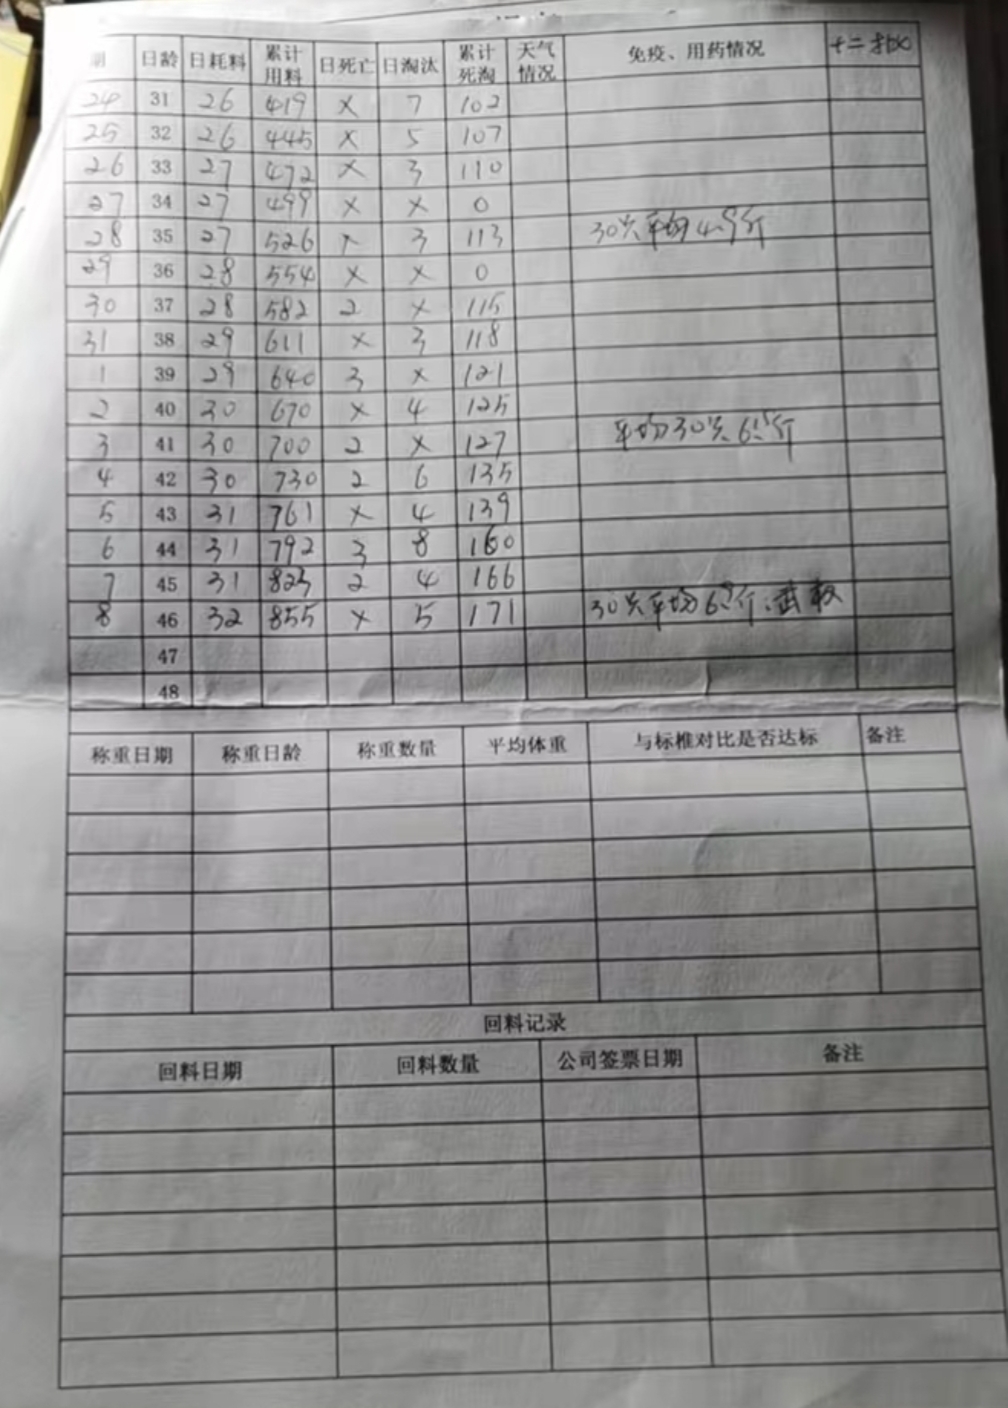 期 日龄 日耗料 累计用料 日死亡 日淘汰 累计死淘 天气情况 免疫、用药情况 十二批
24 31 26 419 × 7 102
25 32 26 445 × 5 107
26 33 27 472 × 3 110
27 34 27 499 × × 0
28 35 27 526 × 3 113 30只平均4.9斤
29 36 28 554 × × 0
30 37 28 582 2 × 115
31 38 29 611 × 3 118
1 39 29 640 3 × 121
2 40 30 670 × 4 125
3 41 30 700 2 × 127 平均30只 斤
4 42 30 730 2 6 135
5 43 31 761 × 4 139
6 44 31 792 3 8 160
7 45 31 823 2 4 166
8 46 32 855 × 5 171 30只平均 斤
47
48
称重日期 称重日龄 称重数量 平均体重 与标椎对比是否达标 备注
回料记录
回料日期 回料数量 公司签票日期 备注